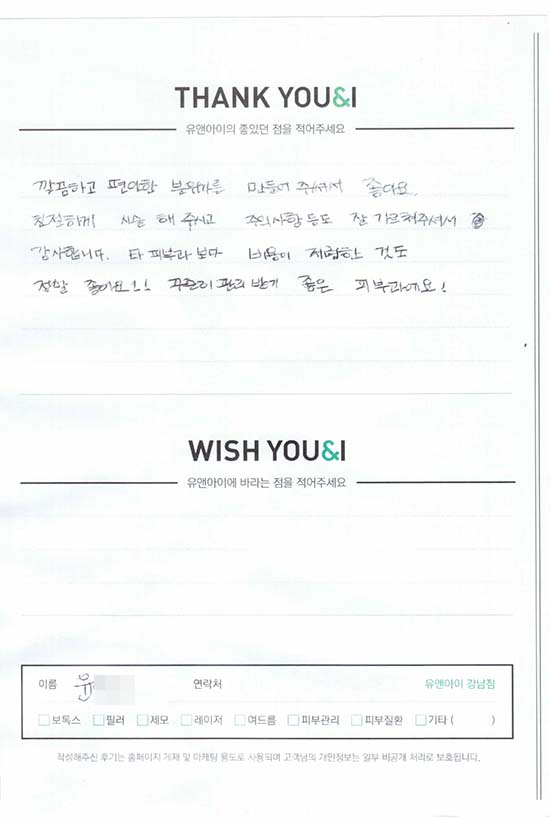 THANK YOU&I
유앤아이의 좋았던 점을 적어주세요
깔끔하고 편안한 분위기를 만들어 주셔서 좋아요
친절하게 시술 해 주시고 주의사항 등도 잘 가르쳐주셔서
감사합니다. 타 피부과 보다 비용이 저렴한 것도
정말 좋아요!! 꾸준히 관리 받기 좋은 피부과에요!
WISH YOU&I
유앤아이에 바라는 점을 적어주세요
이름 유 연락처 유앤아이 강남점
보톡스 필러 제모 레이저 여드름 피부관리 피부질환 기타 ( )
작성해주신 후기는 홈페이지 게재 및 마케팅 용도로 사용되며 고객님의 개인정보는 일부 비공개 처리로 보호됩니다.